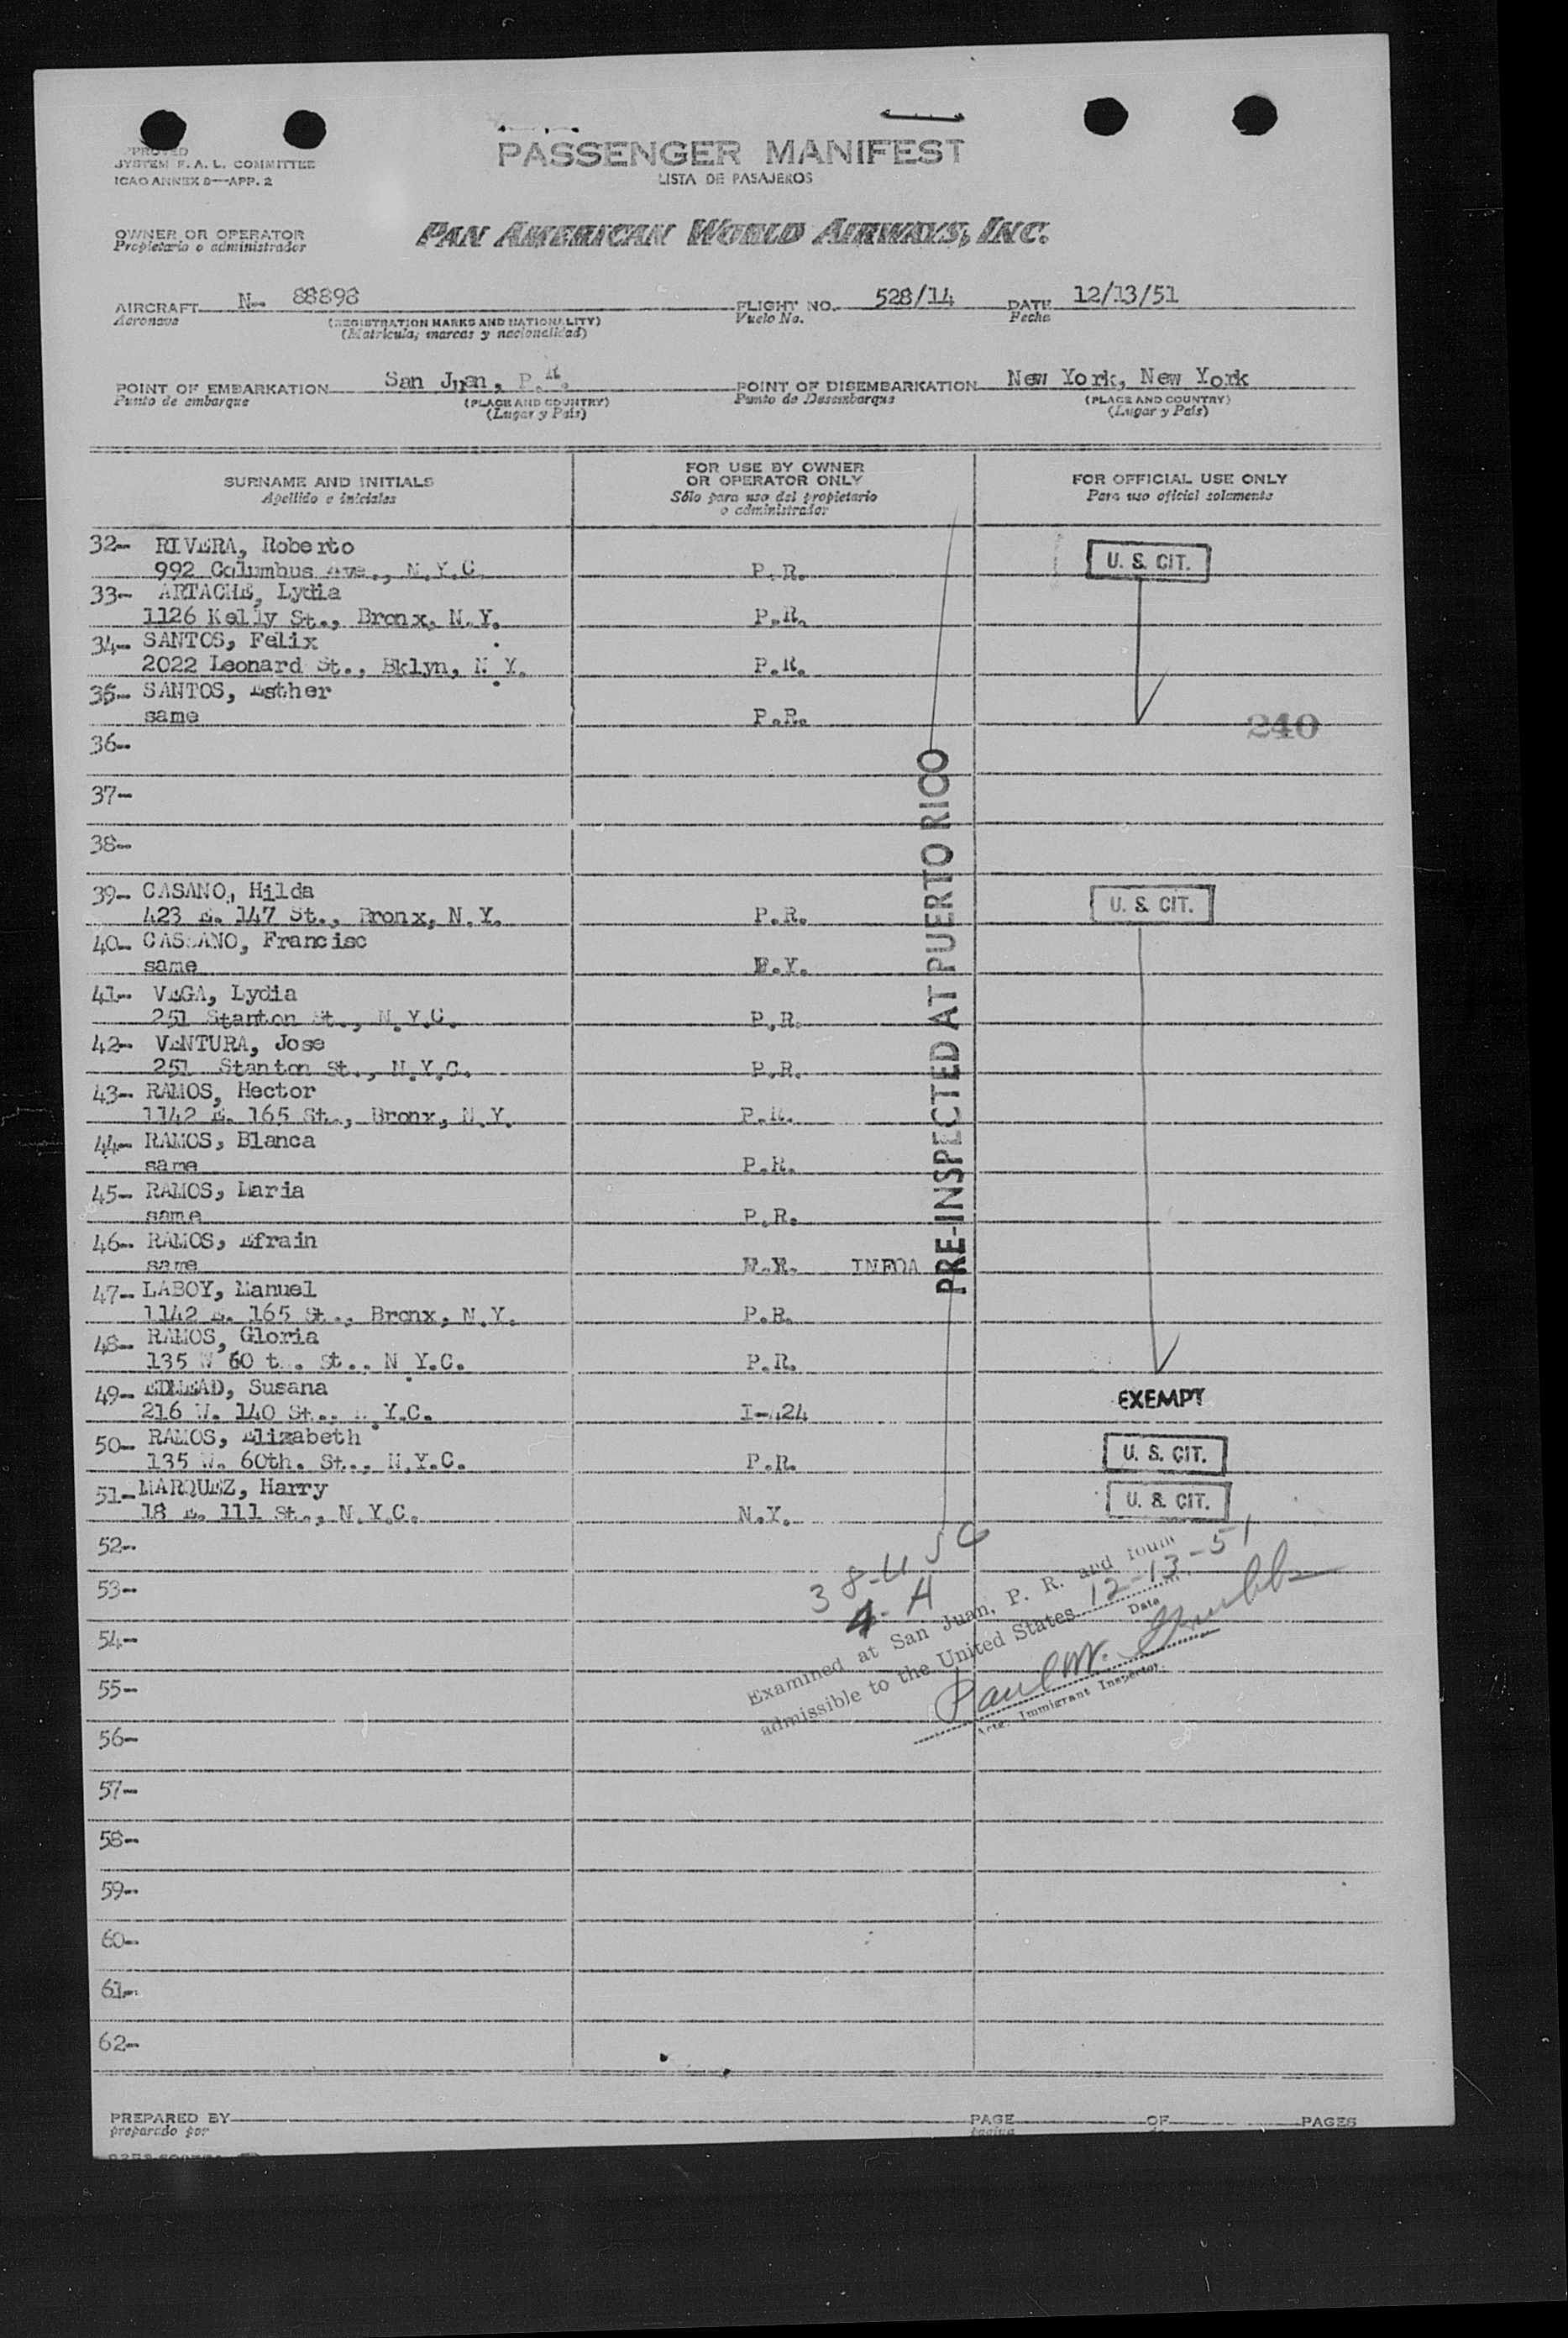 APPROVED
SYSTEM F. A. L. COMMITTEE
ICAO ANNEX 9—APP. 2
PASSENGER MANIFEST
LISTA DE PASAJEROS
OWNER OR OPERATOR
Propietario o administrador
PAN AMERICAN WORLD AIRWAYS, INC.
AIRCRAFT N- 88898 FLIGHT NO. 528/14 DATE 12/13/51
Aeronave (REGISTRATION MARKS AND NATIONALITY) Vuelo No. Fecha
(Matricula, marcas y nacionalidad)
POINT OF EMBARKATION San Juan, P.R. POINT OF DISEMBARKATION New York, New York
Punto de embarque (PLACE AND COUNTRY) Punto de Desembarque (PLACE AND COUNTRY)
(Lugar y País) (Lugar y País)
SURNAME AND INITIALS
Apellido e iniciales
FOR USE BY OWNER
OR OPERATOR ONLY
Sólo para uso del propietario
o administrador
FOR OFFICIAL USE ONLY
Para uso oficial solamente
32- RIVERA, Roberto
992 Columbus Ave., N.Y.C. P.R. U. S. CIT.
33- ARTACHE, Lydia
1126 Kelly St., Bronx, N.Y. P.R.
34- SANTOS, Felix
2022 Leonard St., Bklyn, N.Y. P.R.
35- SANTOS, Esther
same P.R.
240
36-
37-
38-
39- CASANO, Hilda
423 E. 147 St., Bronx, N.Y. P.R. U. S. CIT.
40- CASSANO, Francisc
same N.Y.
41- VEGA, Lydia
251 Stanton St., N.Y.C. P.R.
42- VENTURA, Jose
251 Stanton St., N.Y.C. P.R.
43- RAMOS, Hector
1142 E. 165 St., Bronx, N.Y. P.R.
44- RAMOS, Blanca
same P.R.
45- RAMOS, Maria
same P.R.
46- RAMOS, Efrain
same
47- LABOY, Manuel
1142 E. 165 St., Bronx, N.Y. P.R.
48- RAMOS, Gloria
135 W 60 th. St., N.Y.C. P.R.
49- EDMEAD, Susana
216 W. 140 St., N.Y.C. I-424 EXEMPT
50- RAMOS, Elizabeth
135 W. 60th. St., N.Y.C. P.R. U. S. CIT.
51- MARQUEZ, Harry
18 E. 111 St., N.Y.C. N.Y. U. S. CIT.
PRE-INSPECTED AT PUERTO RICO
52-
53-
54-
55-
56-
57-
58-
59-
60-
61-
62-
38-USC
4-A
Examined at San Juan, P. R. and found
admissible to the United States 12-13-51
Date
Paul W.
Actg. Immigrant Inspector.
PREPARED BY PAGE OF PAGES
preparado por pagina